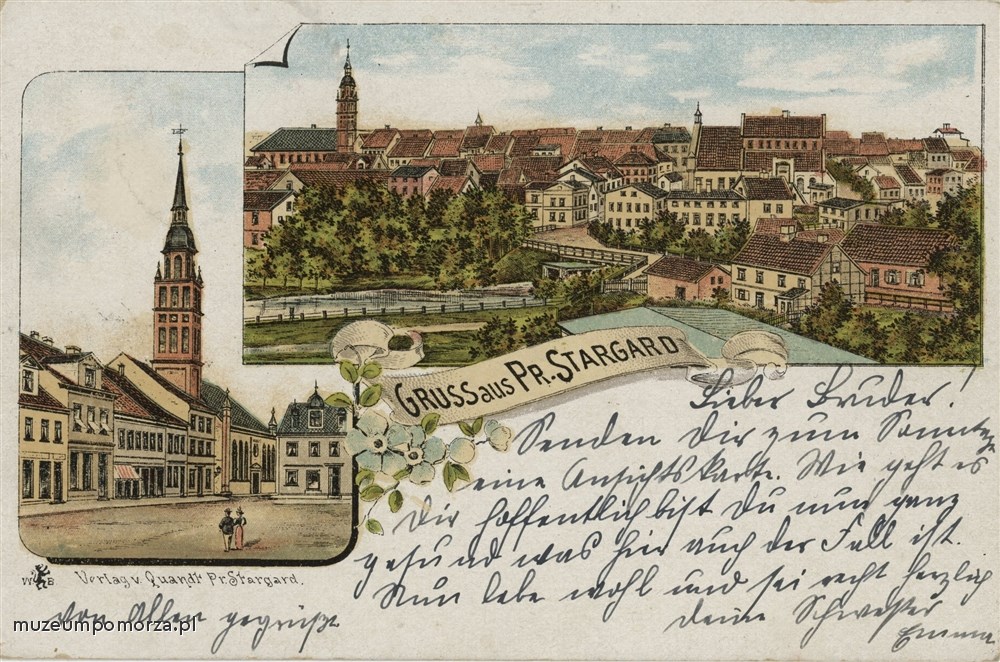 GRUSS aus PR. STARGARD
Lieber Bruder!
Senden Dir zum Sonntag
eine Ansichtskarte. Wie geht es
Dir hoffentlich bist Du nun ganz
gesund was hier auch der Fall ist.
Nun lebe wohl und sei recht herzlich
von Allen gegrüßt
deine Schwester
Emma
W B
Verlag v. Quandt Pr. Stargard.
muzeumpomorza.pl